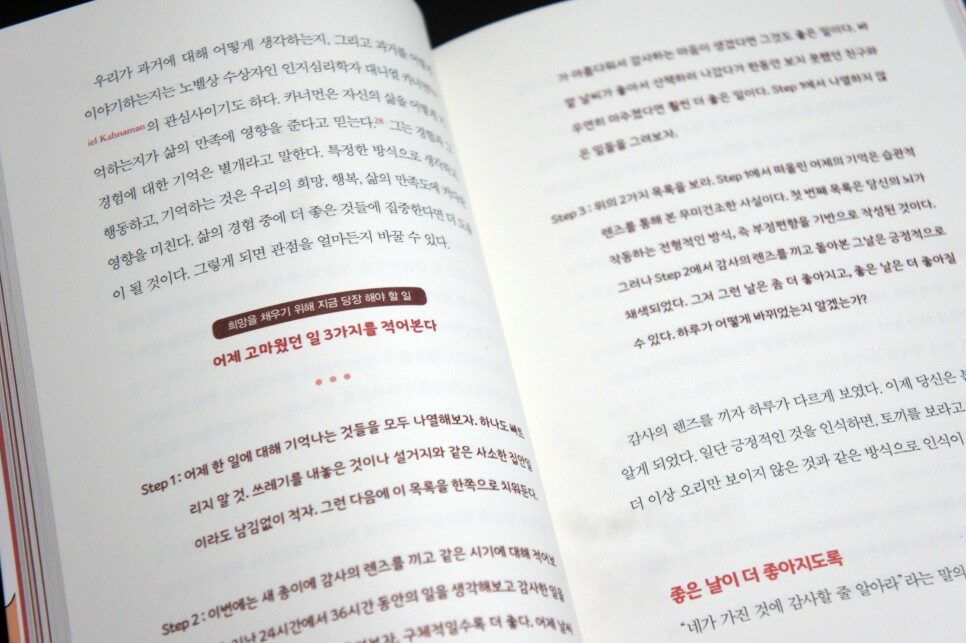 우리가 과거에 대해 어떻게 생각하는지, 그리고 과거를
이야기하는지는 노벨상 수상자인 인지심리학자 대니얼 카너먼
iel Kahnaman의 관심사이기도 하다. 카너먼은 자신의 삶을 어떻게
억하는지가 삶의 만족에 영향을 준다고 믿는다.28 그는 경험과
경험에 대한 기억은 별개라고 말한다. 특정한 방식으로 생각하고,
행동하고, 기억하는 것은 우리의 희망, 행복, 삶의 만족도에 커다란
영향을 미친다. 삶의 경험 중에 더 좋은 것들에 집중한다면 더 도움
이 될 것이다. 그렇게 되면 관점을 얼마든지 바꿀 수 있다.
희망을 채우기 위해 지금 당장 해야 할 일
어제 고마웠던 일 3가지를 적어본다
Step 1 : 어제 한 일에 대해 기억나는 것들을 모두 나열해보자. 하나도 빠트
리지 말 것. 쓰레기를 내놓은 것이나 설거지와 같은 사소한 집안일
이라도 남김없이 적자. 그런 다음에 이 목록을 한쪽으로 치워둔다.
Step 2 : 이번에는 새 종이에 감사의 렌즈를 끼고 같은 시기에 대해 적어보
지난 24시간에서 36시간 동안의 일을 생각해보고 감사한 일을
구체적일수록 더 좋다. 어제 날씨
가 아름다워서 감사하는 마음이 생겼다면 그것도 좋은 일이다. 바
깥 날씨가 좋아서 산책하러 나갔다가 한동안 보지 못했던 친구와
우연히 마주쳤다면 훨씬 더 좋은 일이다. Step 1에서 나열하지 않
은 일들을 그려보자.
Step 3 : 위의 2가지 목록을 보라. Step 1에서 떠올린 어제의 기억은 습관적
렌즈를 통해 본 무미건조한 사실이다. 첫 번째 목록은 당신의 뇌가
작동하는 전형적인 방식, 즉 부정편향을 기반으로 작성된 것이다.
그러나 Step 2에서 감사의 렌즈를 끼고 돌아본 그날은 긍정적으로
채색되었다. 그저 그런 날은 좀 더 좋아지고, 좋은 날은 더 좋아질
수 있다. 하루가 어떻게 바뀌었는지 알겠는가?
감사의 렌즈를 끼자 하루가 다르게 보였다. 이제 당신은
알게 되었다. 일단 긍정적인 것을 인식하면, 토끼를 보라고
더 이상 오리만 보이지 않은 것과 같은 방식으로 인식이
좋은 날이 더 좋아지도록
“네가 가진 것에 감사할 줄 알아라”라는 말의